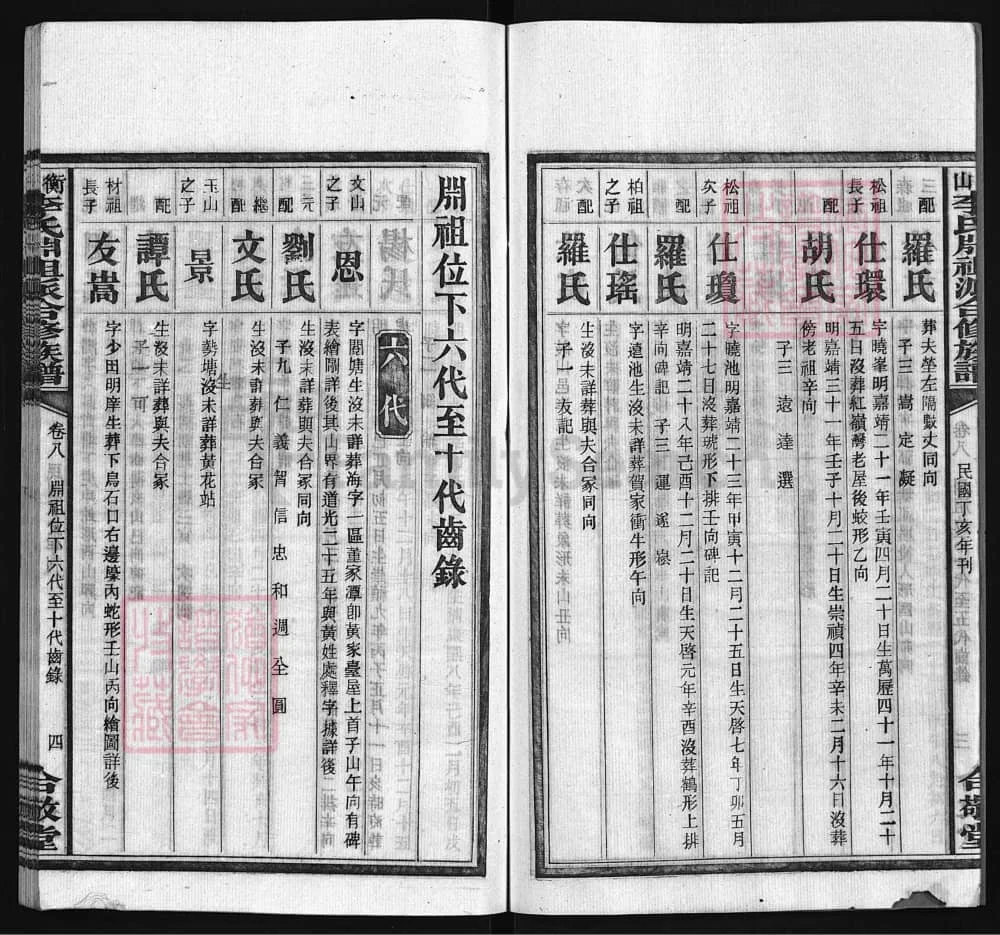 山李氏開祖派合修族譜
卷八
民國丁亥年刊
三
合敬堂
三配
羅氏
葬夫塋左隔數丈同向
子三 嵩 定 凝
松祖長子
仕環
字曉峯明嘉靖二十一年壬寅四月二十日生萬歷四十一年十月二十
五日沒葬紅嶺灣老屋後蛟形乙向
配
胡氏
明嘉靖三十一年壬子十月二十日生崇禎四年辛未二月十六日沒葬
傍老祖辛向
子三 遠 達 選
松祖次子
仕瓊
字曉池明嘉靖二十三年甲寅十二月二十五日生天啓七年丁卯五月
二十七日沒葬琥形下排壬向碑記
配
羅氏
明嘉靖二十八年己酉十二月二十日生天啓元年辛酉沒葬鶴形上排
辛向碑記 子三 運 遂
柏祖之子
仕瑤
字遠池生沒未詳葬賀家衝牛形午向
配
羅氏
生沒未詳葬與夫合冢同向
子一 邑 友
開祖位下六代至十代齒錄
六代
文山之子
恩
字閣塘生沒未詳葬海字一區董家潭卽黃家臺屋上首子山午向有碑
表繪圖詳後其山界有道光二十五年與黃姓處釋字據詳後
三元配
劉氏
生沒未詳葬與夫合冢同向
子九 仁 義 智 信 忠 和 週 全 圓
繼配
文氏
生沒未詳葬與夫合冢
玉山之子
景
字勢塘沒未詳葬黃花站
配
譚氏
生沒未詳葬與夫合冢
子一 可
材祖長子
友嵩
字少田明庠生葬下鳥石口右邊壕內蛇形壬山丙向繪圖詳後
衡李氏開祖派合修族譜
卷八
開祖位下六代至十代齒錄
四
合敬堂